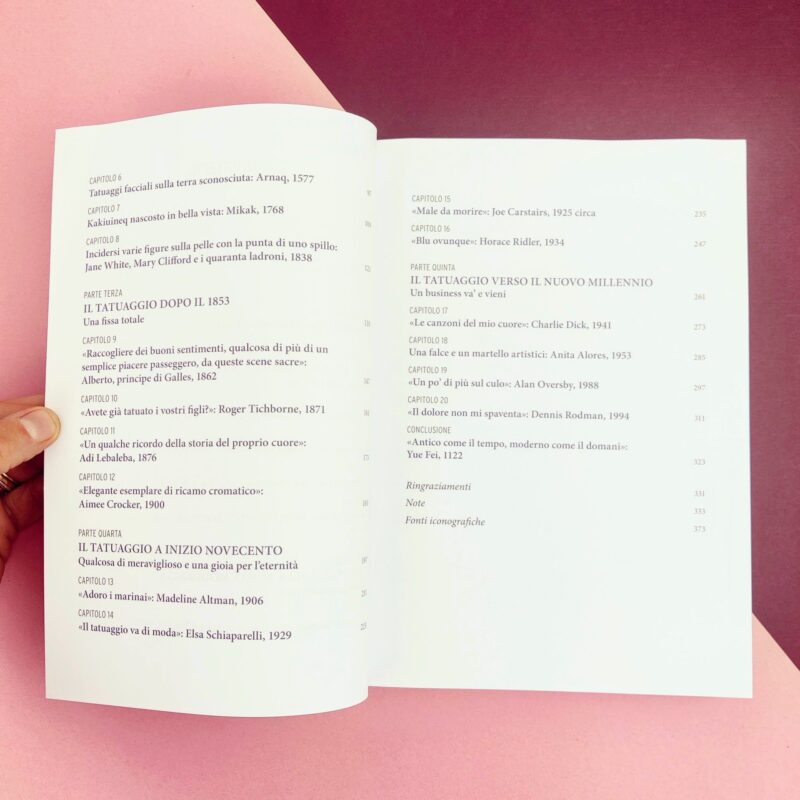 CAPITOLO 6
Tatuaggi facciali sulla terra sconosciuta: Arnaq, 1577
CAPITOLO 7
Kakiuineq nascosto in bella vista: Mikak, 1768
CAPITOLO 8
Incidersi varie figure sulla pelle con la punta di uno spillo:
Jane White, Mary Clifford e i quaranta ladroni, 1838
PARTE TERZA
IL TATUAGGIO DOPO IL 1853
Una fissa totale
CAPITOLO 9
«Raccogliere dei buoni sentimenti, qualcosa di più di un
semplice piacere passeggero, da queste scene sacre»:
Alberto, principe di Galles, 1862
CAPITOLO 10
«Avete già tatuato i vostri figli?»: Roger Tichborne, 1871
CAPITOLO 11
«Un qualche ricordo della storia del proprio cuore»:
Adi Lebaleba, 1876
CAPITOLO 12
«Elegante esemplare di ricamo cromatico»:
Aimee Crocker, 1900
PARTE QUARTA
IL TATUAGGIO A INIZIO NOVECENTO
Qualcosa di meraviglioso e una gioia per l'eternità
CAPITOLO 13
«Adoro i marinai»: Madeline Altman, 1906
CAPITOLO 14
«Il tatuaggio va di moda»: Elsa Schiaparelli, 1929
CAPITOLO 15
«Male da morire»: Joe Carstairs, 1925 circa 235
CAPITOLO 16
«Blu ovunque»: Horace Ridler, 1934 247
PARTE QUINTA
IL TATUAGGIO VERSO IL NUOVO MILLENNIO
Un business va' e vieni 261
CAPITOLO 17
«Le canzoni del mio cuore»: Charlie Dick, 1941 273
CAPITOLO 18
Una falce e un martello artistici: Anita Alores, 1953 285
CAPITOLO 19
«Un po' di più sul culo»: Alan Oversby, 1988 297
CAPITOLO 20
«Il dolore non mi spaventa»: Dennis Rodman, 1994 311
CONCLUSIONE
«Antico come il tempo, moderno come il domani»:
Yue Fei, 1122 323
Ringraziamenti 331
Note 333
Fonti iconografiche 373